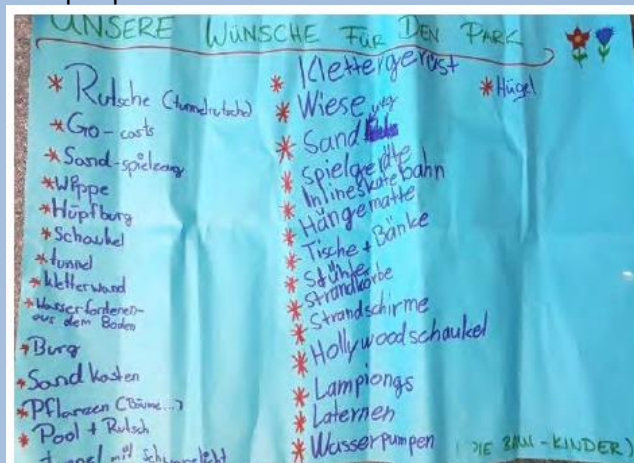 UNSERE WÜNSCHE FÜR DEN PARK
* Rutsche (tunnelrutsche)
* Go-casts
* Sand-spielzeug
* Wippe
* Hüpfburg
* Schaukel
* tunnel
* kletterwand
* Wasserfordenen-
aus dem Boden
* Burg
* Sandkasten
* Pflanzen (Bäume...)
* Pool + Rutsch
tunnel mit
* Klettergerüst
* Wiese weg
* Sand
* Spielgeräte
* Inlineskatebahn
* Hängematte
* Tische + Bänke
* Stühle
* Strandkörbe
* Strandschirme
* Hollywoodschaukel
* Lampiongs
* Laternen
* Wasserpumpen
* Hügel
(DIE BAUI-KINDER)